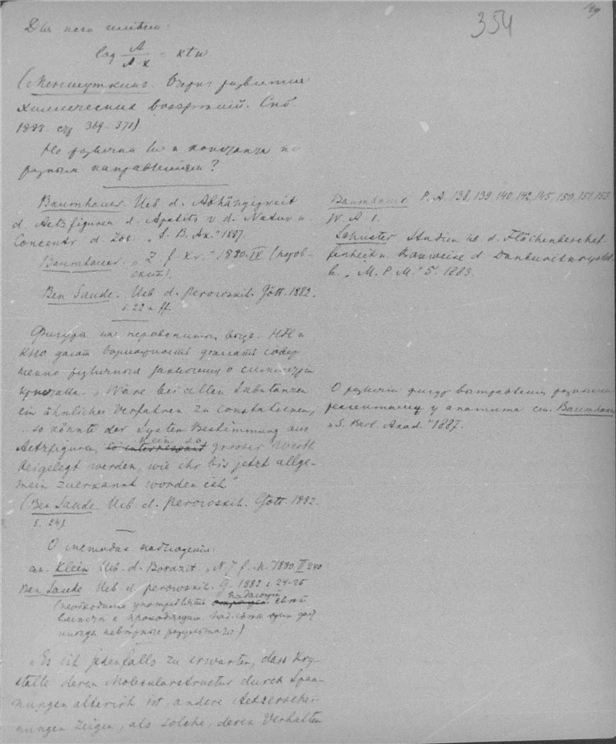 354
Для него имеем:
log A/A-x = xtw
(Меншуткинъ. Очерк развития
химических воззрений. Спб.
1888. стр 369-371)
Но различны ли и константа по
разным направлениям?
Baumhauer Ueb d. Abhängigkeit
d. Aetzfiguren d. Apatits v. d. Natur u.
Concentr d. "S. B. Ak." 1887.
Baumhauer. "Z. f. Kr." 1880 IV
Ben Saude. Ueb d. Perowskit. Gött. 1882.
s. 22 u ff.
Фигура на перовскитъ HFl и
KHO дают возможность делать совер-
шенно различные заключения о симметрии
кристалла. "Wäre bei allen Substanzen
ein ähnliches Verfahren zu constatieren,
so könnte der System Bestimmung aus
Aetzfiguren kein so grosser Werth
beigelegt werden, wie ihr bis jetzt allge-
mein zuerkannt worden ist"
(Ben Saude Ueb d. Perowskit. Gött. 1882.
s. 24)
О методах наблюдения
см. Klein Ueb. d. Boracit. "N. J. f. M." 1880 II
Ben Saude Ueb d. perowskit. G. 1882 s. 24-25
(необходимо употреблять
иногда неверные результаты.)
"Es ist jedenfalls zu erwarten, dass Kry-
stalle deren Molecularstructur durch Span-
nungen alterirt ist, andere Aetzerschei-
nungen zeigen, als solche, deren Verhalten
Baumhauer P. A. 138, 139, 140, 142, 145, 150, 151, 153
W A 1.
Schuster Studien üb. d. Flächenbeschaf-
fenheit u. Bauweise d. Danburitkryst.
"M. P. M." 5. 1883.
О различии фигур вытравления разными
у апатита см. Baumhauer
"S. Berl. Acad." 1887.